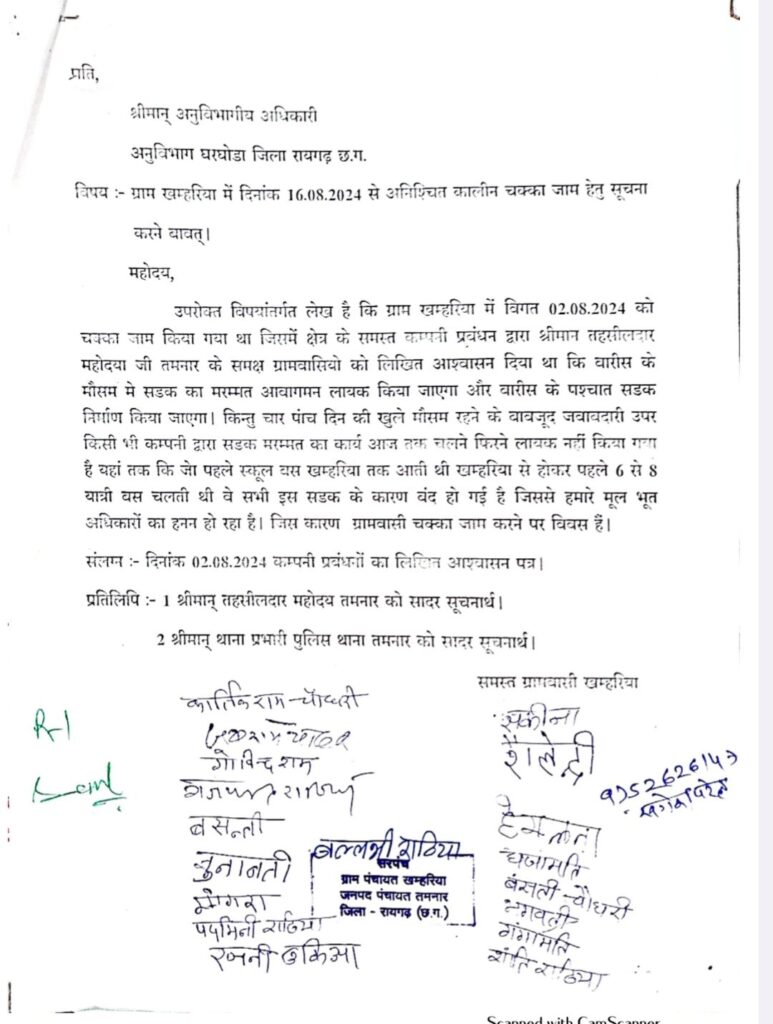 प्रति,
श्रीमान् अनुविभागीय अधिकारी
अनुविभाग घरघोडा जिला रायगढ़ छ.ग.
विषय :- ग्राम खम्हरिया में दिनांक 16.08.2024 से अनिश्चित कालीन चक्का जाम हेतु सूचना
करने बावत्।
महोदय,
उपरोक्त विषयांतर्गत लेख है कि ग्राम खम्हरिया में विगत 02.08.2024 को
चक्का जाम किया गया था जिसमें क्षेत्र के समस्त कम्पनी प्रबंधन द्वारा श्रीमान तहसीलदार
महोदया जी तमनार के समक्ष ग्रामवासियो को लिखित आश्वासन दिया था कि वारीस के
मौसम मे सडक का मरम्मत आवागमन लायक किया जाएगा और वारीस के पश्चात सडक
निर्माण किया जाएगा। किन्तु चार पांच दिन की खुले मौसम रहने के वावजूद जवावदारी उपर
किसी भी कम्पनी द्वारा सडक मरम्मत का कार्य आज तक चलने फिरने लायक नहीं किया गया
है यहां तक कि जो पहले स्कूल बस खम्हरिया तक आती थी खम्हरिया से होकर पहले 6 से 8
यात्री बस चलती थी वे सभी इस सडक के कारण वंद हो गई है जिससे हमारे मूल भूत
अधिकारों का हनन हो रहा है। जिस कारण ग्रामवासी चक्का जाम करने पर विवस हैं।
संलग्न :- दिनांक 02.08.2024 कम्पनी प्रबंधनों का लिखित आश्वासन पत्र।
प्रतिलिपि :- 1 श्रीमान् तहसीलदार महोदय तमनार को सादर सूचनार्थ।
2 श्रीमान् थाना प्रभारी पुलिस थाना तमनार को सादर सूचनार्थ।
समस्त ग्रामवासी खम्हरिया
कार्तिक राम चौधरी
गोविन्द राम
बसन्ती
गुनानती
मोगरा
पदमिनी राठिया
रजनी
R-1
राठिया
सरपंच
ग्राम पंचायत खम्हरिया
जनपद पंचायत तमनार
जिला - रायगढ़ (छ.ग.)
सकीना
शैलेन्द्री
हेमलता
धजामति
बंसती चौधरी
भगवती
गंगामति
शांति राठिया
Scanned with CamScanner